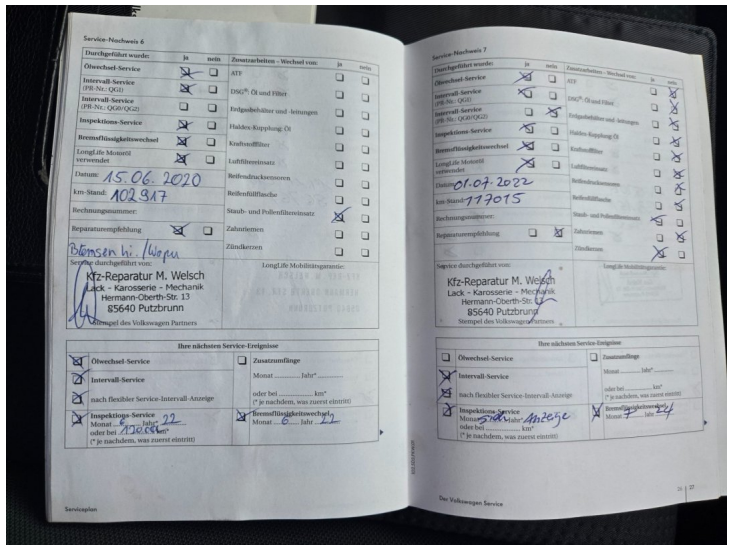 Service-Nachweis 6
Durchgeführt wurde: ja nein Zusatzarbeiten – Wechsel von: ja nein
Ölwechsel-Service
ATF
Intervall-Service
(PR-Nr.: QG1)
DSG®: Öl und Filter
Intervall-Service
(PR-Nr.: QG0/QG2)
Erdgasbehälter und -leitungen
Inspektions-Service
Haldex-Kupplung: Öl
Bremsflüssigkeitswechsel
Kraftstofffilter
LongLife Motoröl
verwendet
Luftfiltereinsatz
Datum: 15.06.2020
Reifendrucksensoren
km-Stand: 102917
Reifenfüllflasche
Rechnungsnummer:
Staub- und Pollenfiltereinsatz
Reparaturempfehlung
Zahnriemen
Zündkerzen
Bremsen hi. /Wapu
Service durchgeführt von: LongLife Mobilitätsgarantie:
Kfz-Reparatur M. Welsch
Lack - Karosserie - Mechanik
Hermann-Oberth-Str. 13
85640 Putzbrunn
Stempel des Volkswagen Partners
Ihre nächsten Service-Ereignisse
Ölwechsel-Service
Zusatzumfänge
Monat Jahr*
Intervall-Service
nach flexibler Service-Intervall-Anzeige
oder bei km*
(* je nachdem, was zuerst eintritt)
Inspektions-Service
Monat 6 Jahr* 22
oder bei km*
(* je nachdem, was zuerst eintritt)
Bremsflüssigkeitswechsel
Monat 6 Jahr 22
Serviceplan
Service-Nachweis 7
Durchgeführt wurde: ja nein Zusatzarbeiten – Wechsel von: ja nein
Ölwechsel-Service
ATF
Intervall-Service
(PR-Nr.: QG1)
DSG®: Öl und Filter
Intervall-Service
(PR-Nr.: QG0/QG2)
Erdgasbehälter und -leitungen
Inspektions-Service
Haldex-Kupplung: Öl
Bremsflüssigkeitswechsel
Kraftstofffilter
LongLife Motoröl
verwendet
Luftfiltereinsatz
Datum: 01.07.2022
Reifendrucksensoren
km-Stand: 117015
Reifenfüllflasche
Rechnungsnummer:
Staub- und Pollenfiltereinsatz
Reparaturempfehlung
Zahnriemen
Zündkerzen
Service durchgeführt von: LongLife Mobilitätsgarantie:
Kfz-Reparatur M. Welsch
Lack - Karosserie - Mechanik
Hermann-Oberth-Str. 13
85640 Putzbrunn
Stempel des Volkswagen Partners
Ihre nächsten Service-Ereignisse
Ölwechsel-Service
Zusatzumfänge
Monat Jahr*
Intervall-Service
nach flexibler Service-Intervall-Anzeige
oder bei km*
(* je nachdem, was zuerst eintritt)
Inspektions-Service
Monat Jahr* Anzeige
oder bei km*
(* je nachdem, was zuerst eintritt)
Bremsflüssigkeitswechsel
Monat 7 Jahr 24
Der Volkswagen Service
26 27